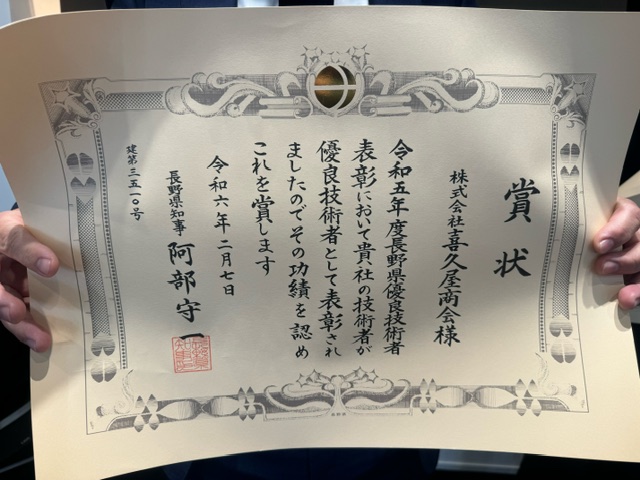 賞状
株式会社喜久屋商会様
令和五年度長野県優良技術者
表彰において貴社の技術者が
優良技術者として表彰され
ましたのでその功績を認め
これを賞します
令和六年二月七日
長野県知事 阿部守一
建第三五一〇号